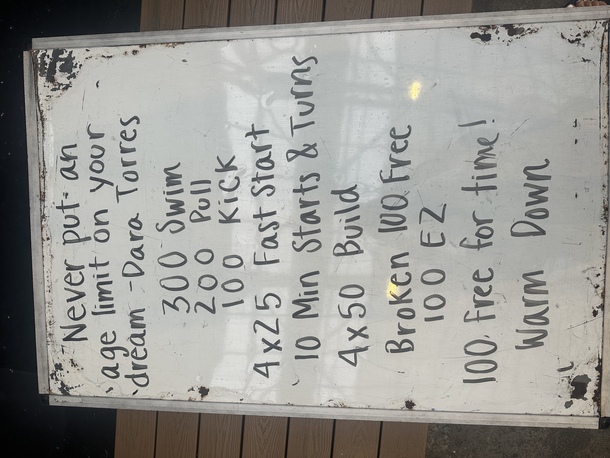 Never put an
age limit on your
dream - Dara Torres
300 Swim
200 Pull
100 Kick
4x25 Fast Start
10 Min Starts & Turns
4x50 Build
Broken 100 Free
100 EZ
100 Free for time!
Warm Down